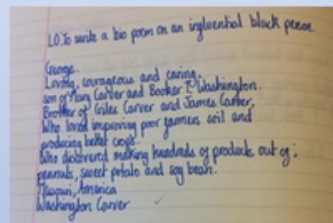 L.O To write a bio poem on an influential black person
George.
Loving, courageous and caring,
son of Mary Carver and Booker T. Washington.
Brother of Giles Carver and James Carver,
Who loved improving poor farmers soil and
producing better crops.
Who discovered making hundreds of products out of;
peanuts, sweet potato and soy bean.
America
Washington Carver